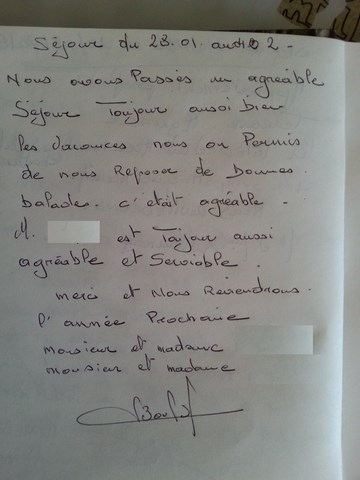 Séjour du 28.01. au 2 -
Nous avons Passés un agréable
Séjour Toujour aussi bien
les vacances nous on Permis
de nous Reposer de Bonnes
balade. c'était agréable -
M. est Toujour aussi
agréable et Serviable.
merci et Nous Reviendrons.
l'année Prochaine
monsieur et madame
monsieur et madame